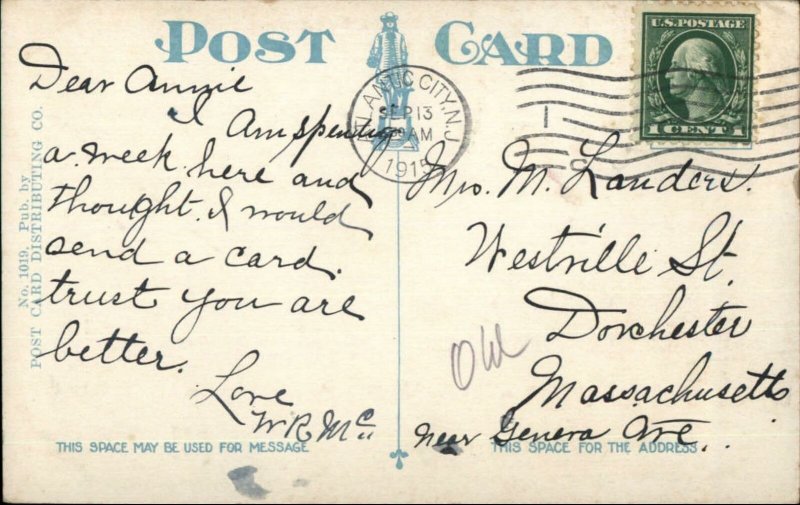 POST CARD
No. 1019. Pub. by
POST CARD DISTRIBUTING CO.
Dear Annie
I Am spenting
a week here and
thought I would
send a card.
trust you are
better.
Love
W R Mc
THIS SPACE MAY BE USED FOR MESSAGE
ATLANTIC CITY, N.J.
SEP 13
AM
1915
U.S. POSTAGE
1 CENT 1
Mrs. M. Landers.
Westville St.
Dorchester
Massachusetts
near Geneva Ave.
THIS SPACE FOR THE ADDRESS